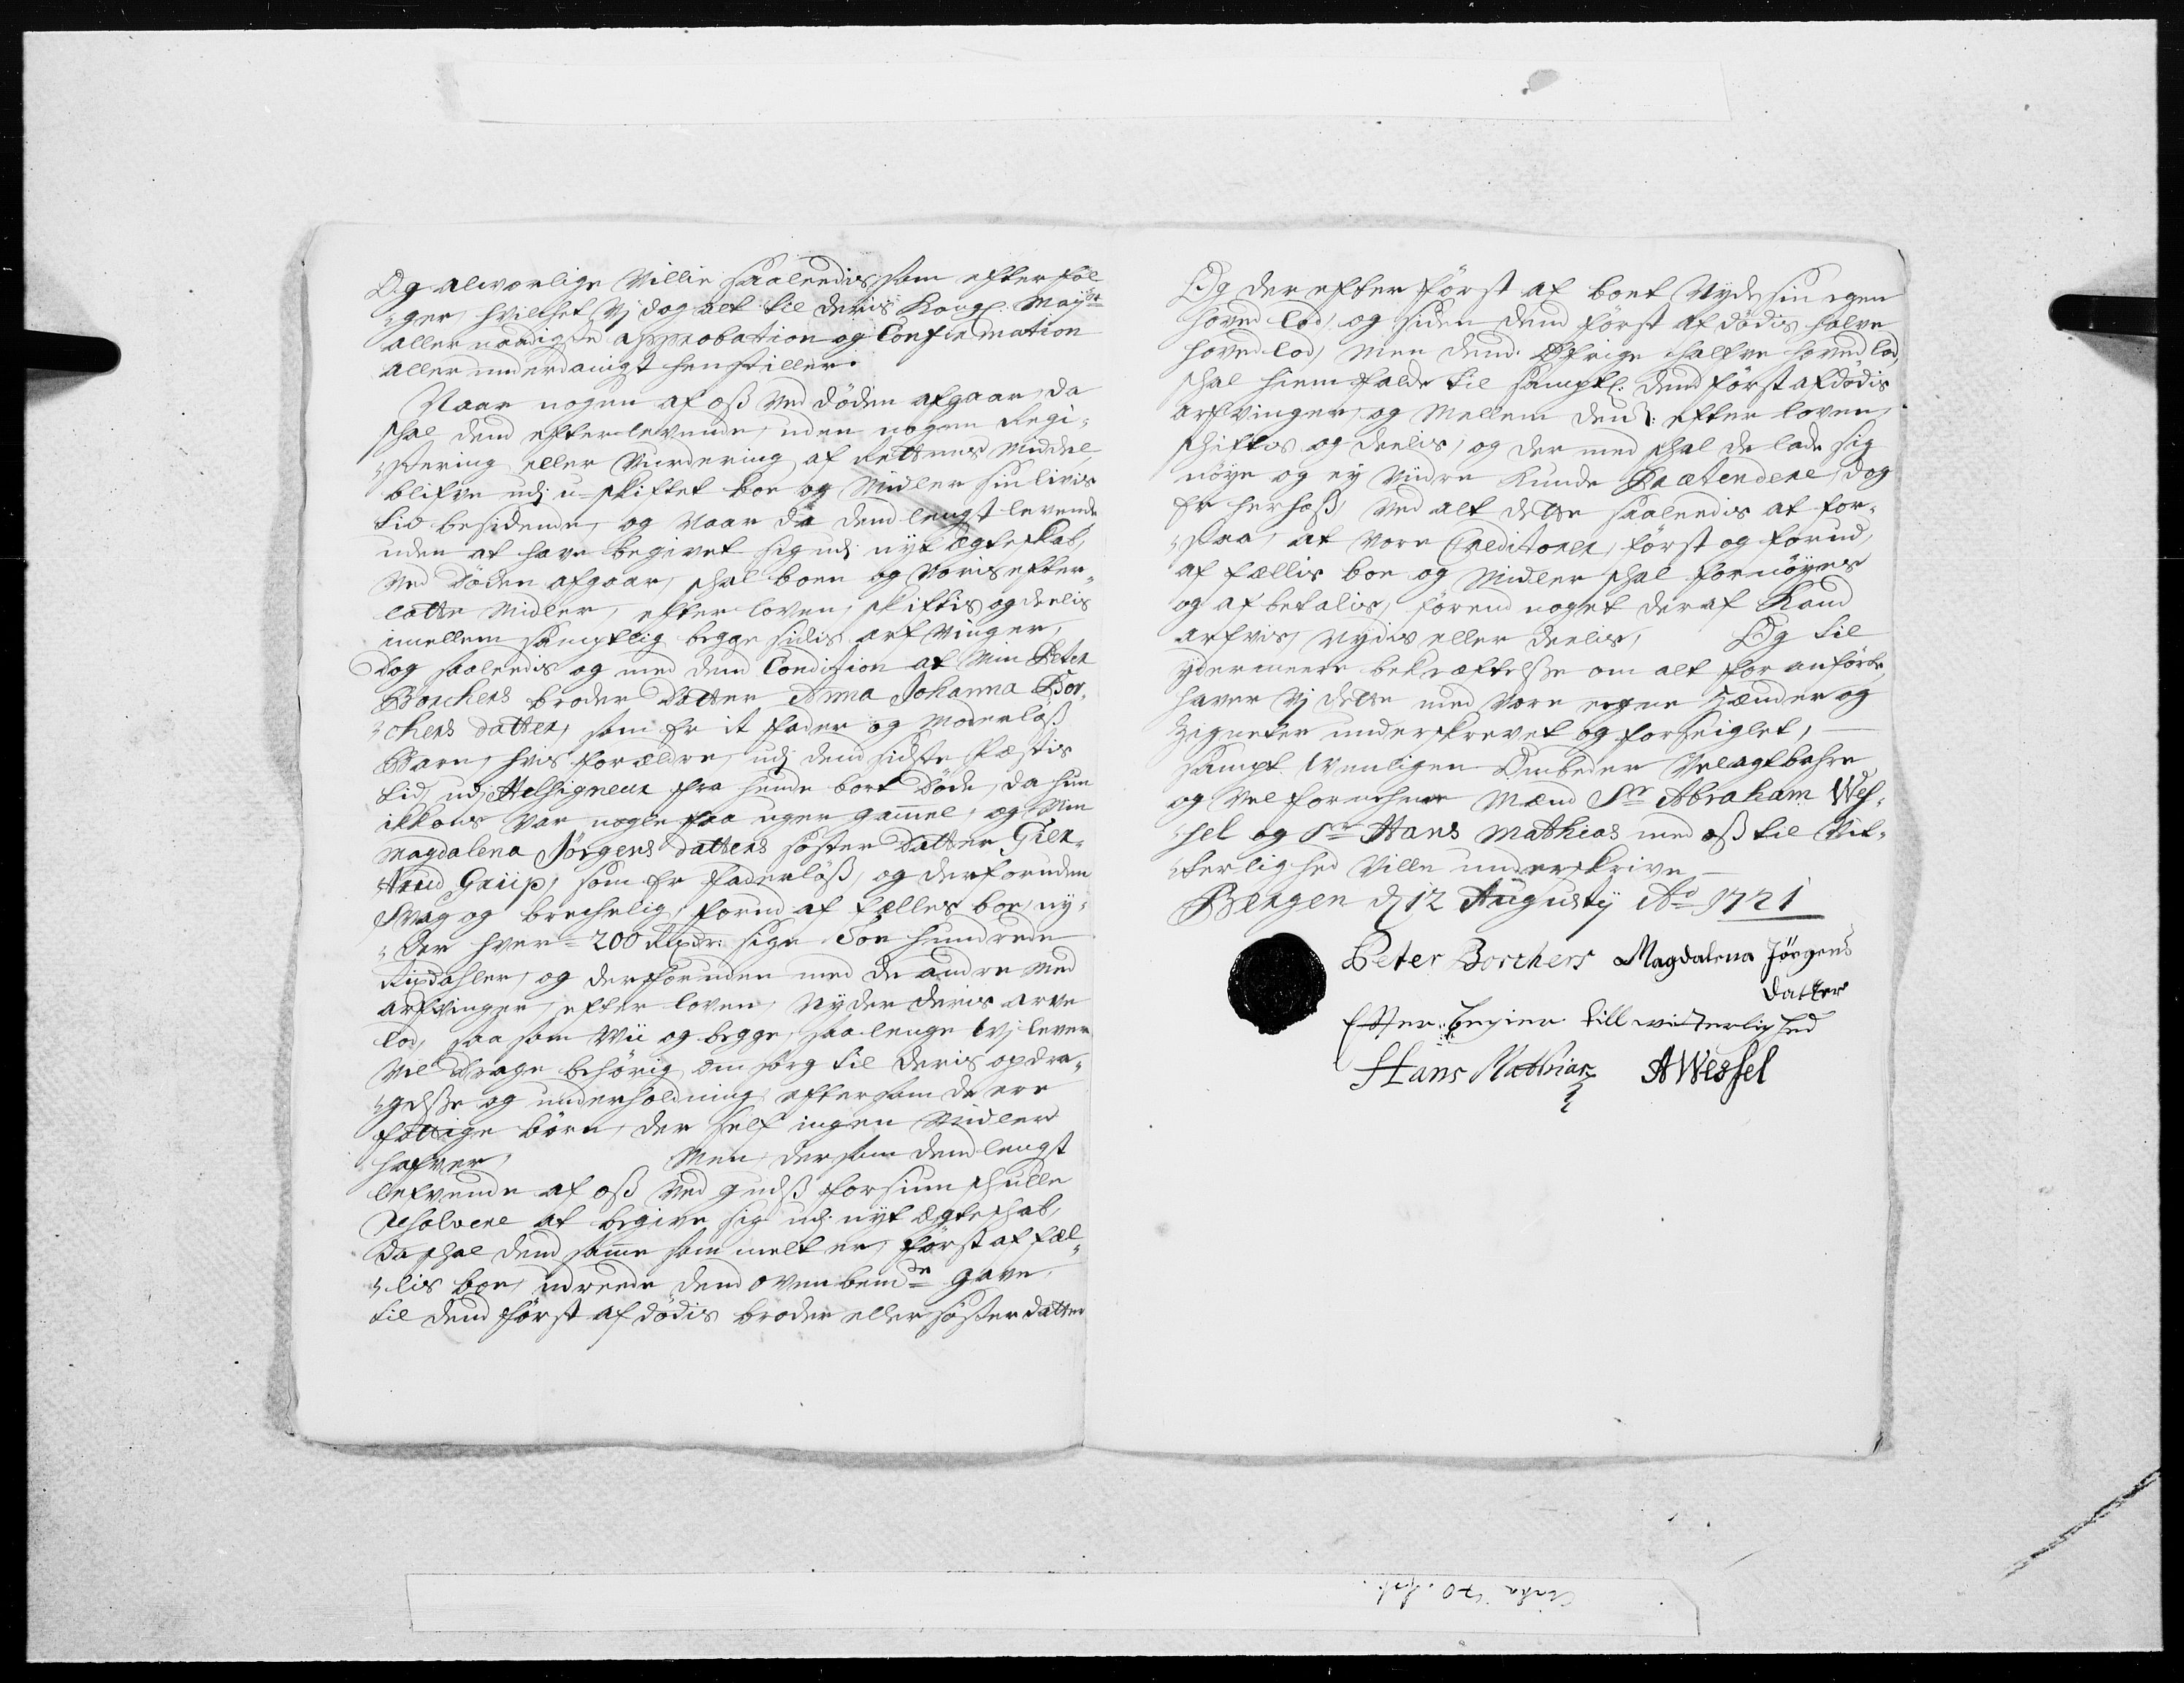 Og alworlige Villie saaleedis som efterføl
"ger, hvilket Vj dog alt til deris Kongl: Mayst
allernaadigste approbation og Confirmation
allerunderdanigst henstiller.
Naar nogen af oss ved døden afgaar, da
skal dend efterlevende, uden nogen Regi„
„stering eller Vurdering af Rettens Middel
blifve udj u-skiftet boe og Midler sin livis
tid besidende, og Naar da dend lengst levende
uden at have begivet sig udj nyt ægteskab,
ved Døden afgaar, skal boen og Voris efter„
latte Midler, efter loven, skiftis og deelis
imellem samptlig begge sidis arfvinger,
Dog saaleedis og med dend Condition at Min Peter
Borchers broder Datter Anna Johanna Bor„
„chers datter, som er it fader og Moderløss
Barn, hvis forældre, udj dend sidste Pestis
tid, udj Helsigneur fra hende bort døde, da hun
ikkons var nogle faa uger gammel, og Min
Magdalena Jörgens datters søster datter Gier„
trud Griip, som er faderløss, og derforuden
Svag og brechelig, forud af felles boe, ny„
„der hver = 200 Rixdr: sige Toe hundrede
Rixdahler, og derforuden med de andre Med
arfvinger, efter loven, Nyder deris arve
lod, saa som Vii og begge, saa lenge Wj lever
Vil Drage behörig omsorg til deris opdra„
„gelsse og underholdning eftersom de ere
fattige börn, der self ingen Midler
hafver, Men, dersom dend lengst
lefvende af oss ved guds forsiun skulle
Resolvere at begive sig udj nyt ægteskab,
da skal dend samme som melt er, først af fel„
„lis boe, udreede dend ovenbemte gave
til dend först afdödis broder eller søster datter
Og derefter først af boet Nyde sin egen
hoved lod, og siden dend först afdödis halve
hovedlod, Men dend Öfrige halfve hovedlod,
skal hiemfalde til samptl: dend först afdödis
arfvinger, og Mellem dend: efter loven,
skiftes og deelis, og der med skal de lade sig
nöye og ey Vidre kunde Prætendere, dog
er herhoss, ved alt dette saaleedis at for„
„staa, at vore Creditorer, först og forud,
af fellis boe og Midler skal fornöyes
og afbetalis, förend noget deraf Kand
arfvis, Nydis eller deelis, Og til
ydermeere bekræftelsse om alt foranförte,
haver Vj dette med Vore egene Hænder og
Zigneter underskrevet og forseiglet,
sampt Venligen Ombeder Velagtbahre
og Velfornehme Mænd Sr Abraham Wes„
„sel og Sr Hans Mathias med oss til Vit„
„terlighed Ville underskrive
Bergen d 12 Augusty Ao 1721
Peter Borchers Magdalena Jörgens
datter
Efter Begier till witterlighed
Hans Mathias AWessel
Cirka 70 fot.